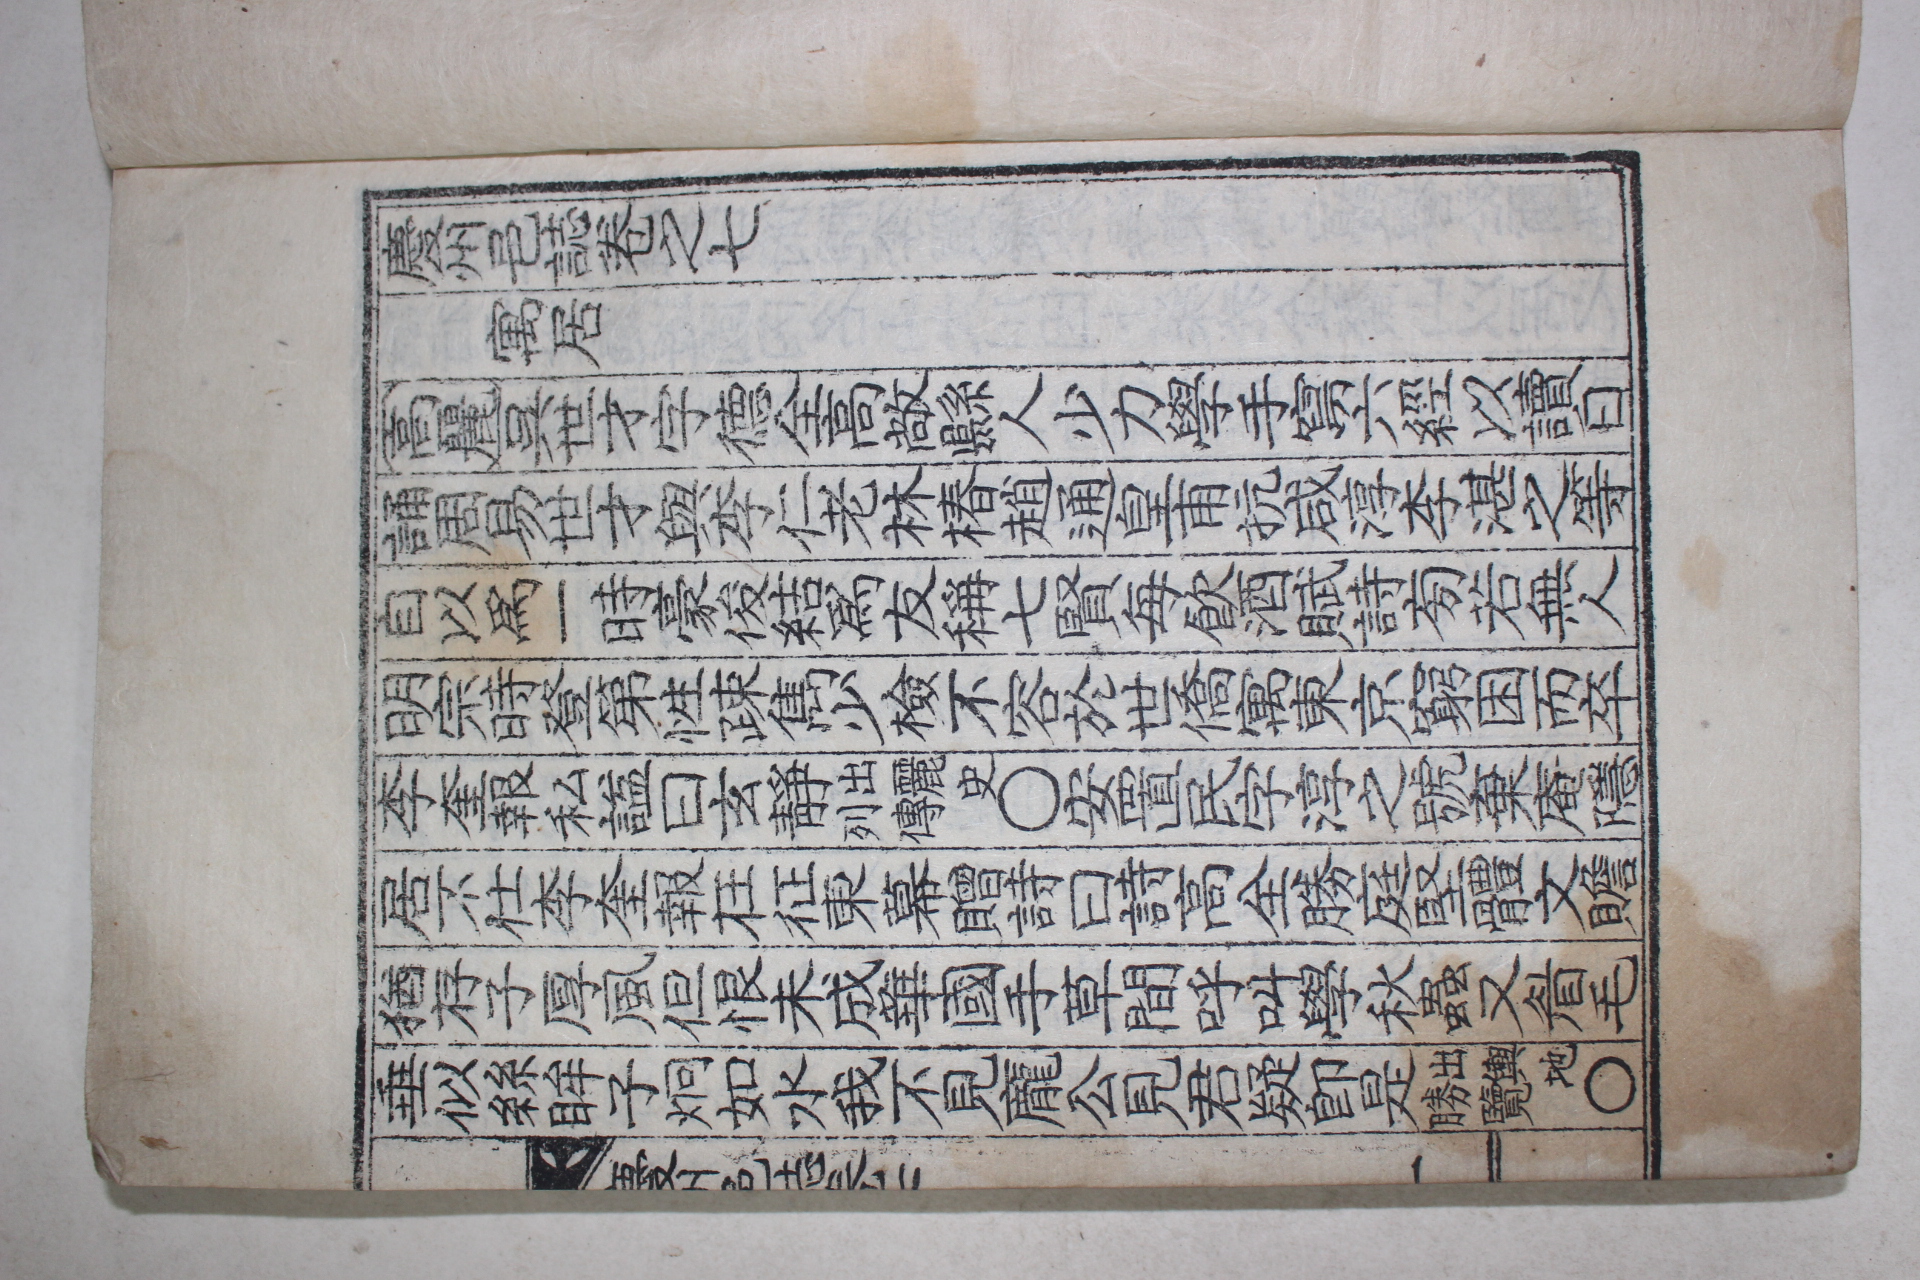 慶州邑誌卷之七
寓居
高麗吳世才字德全高敞縣人少力學手寫六經以讀日
誦周易世才與李仁老林椿趙通皇甫抗咸淳李湛之等
自以爲一時豪俊結爲友稱七賢每飮酒賦詩旁若無人
明宗時登第性疎雋少檢不容於世僑寓東京窮困而卒
李奎報私謚曰玄靜出麗史列傳○安置民字淳之號棄庵隱
居不仕李奎報在征東幕贈詩曰詩高全勝庭堅體文贍
猶存子厚風但恨未成華國手草間呼叫學秋蟲又眉毛
垂似絲眸子炯如水我不見龐公見君疑卽是出輿地勝覽○
慶州邑誌卷七
一